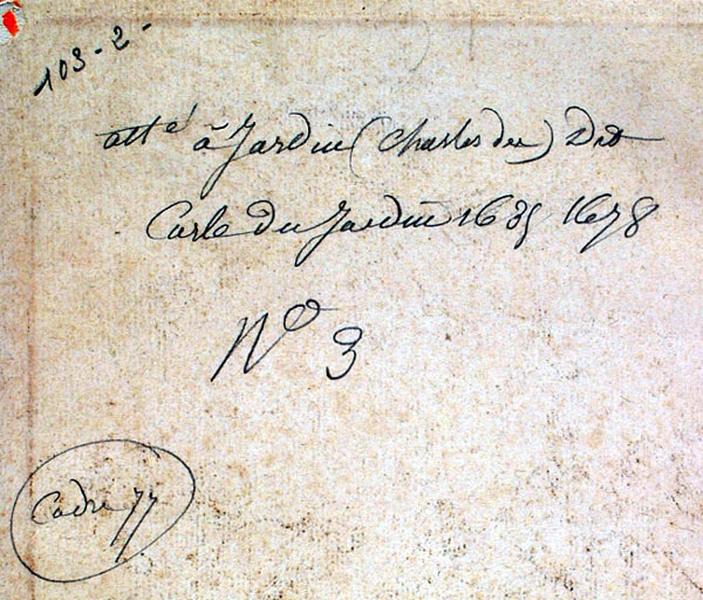 103-2-
atté à Jardin (Charles du) Dit
Carle Du Jardin 1635 1678
N° 3
Cadre 77